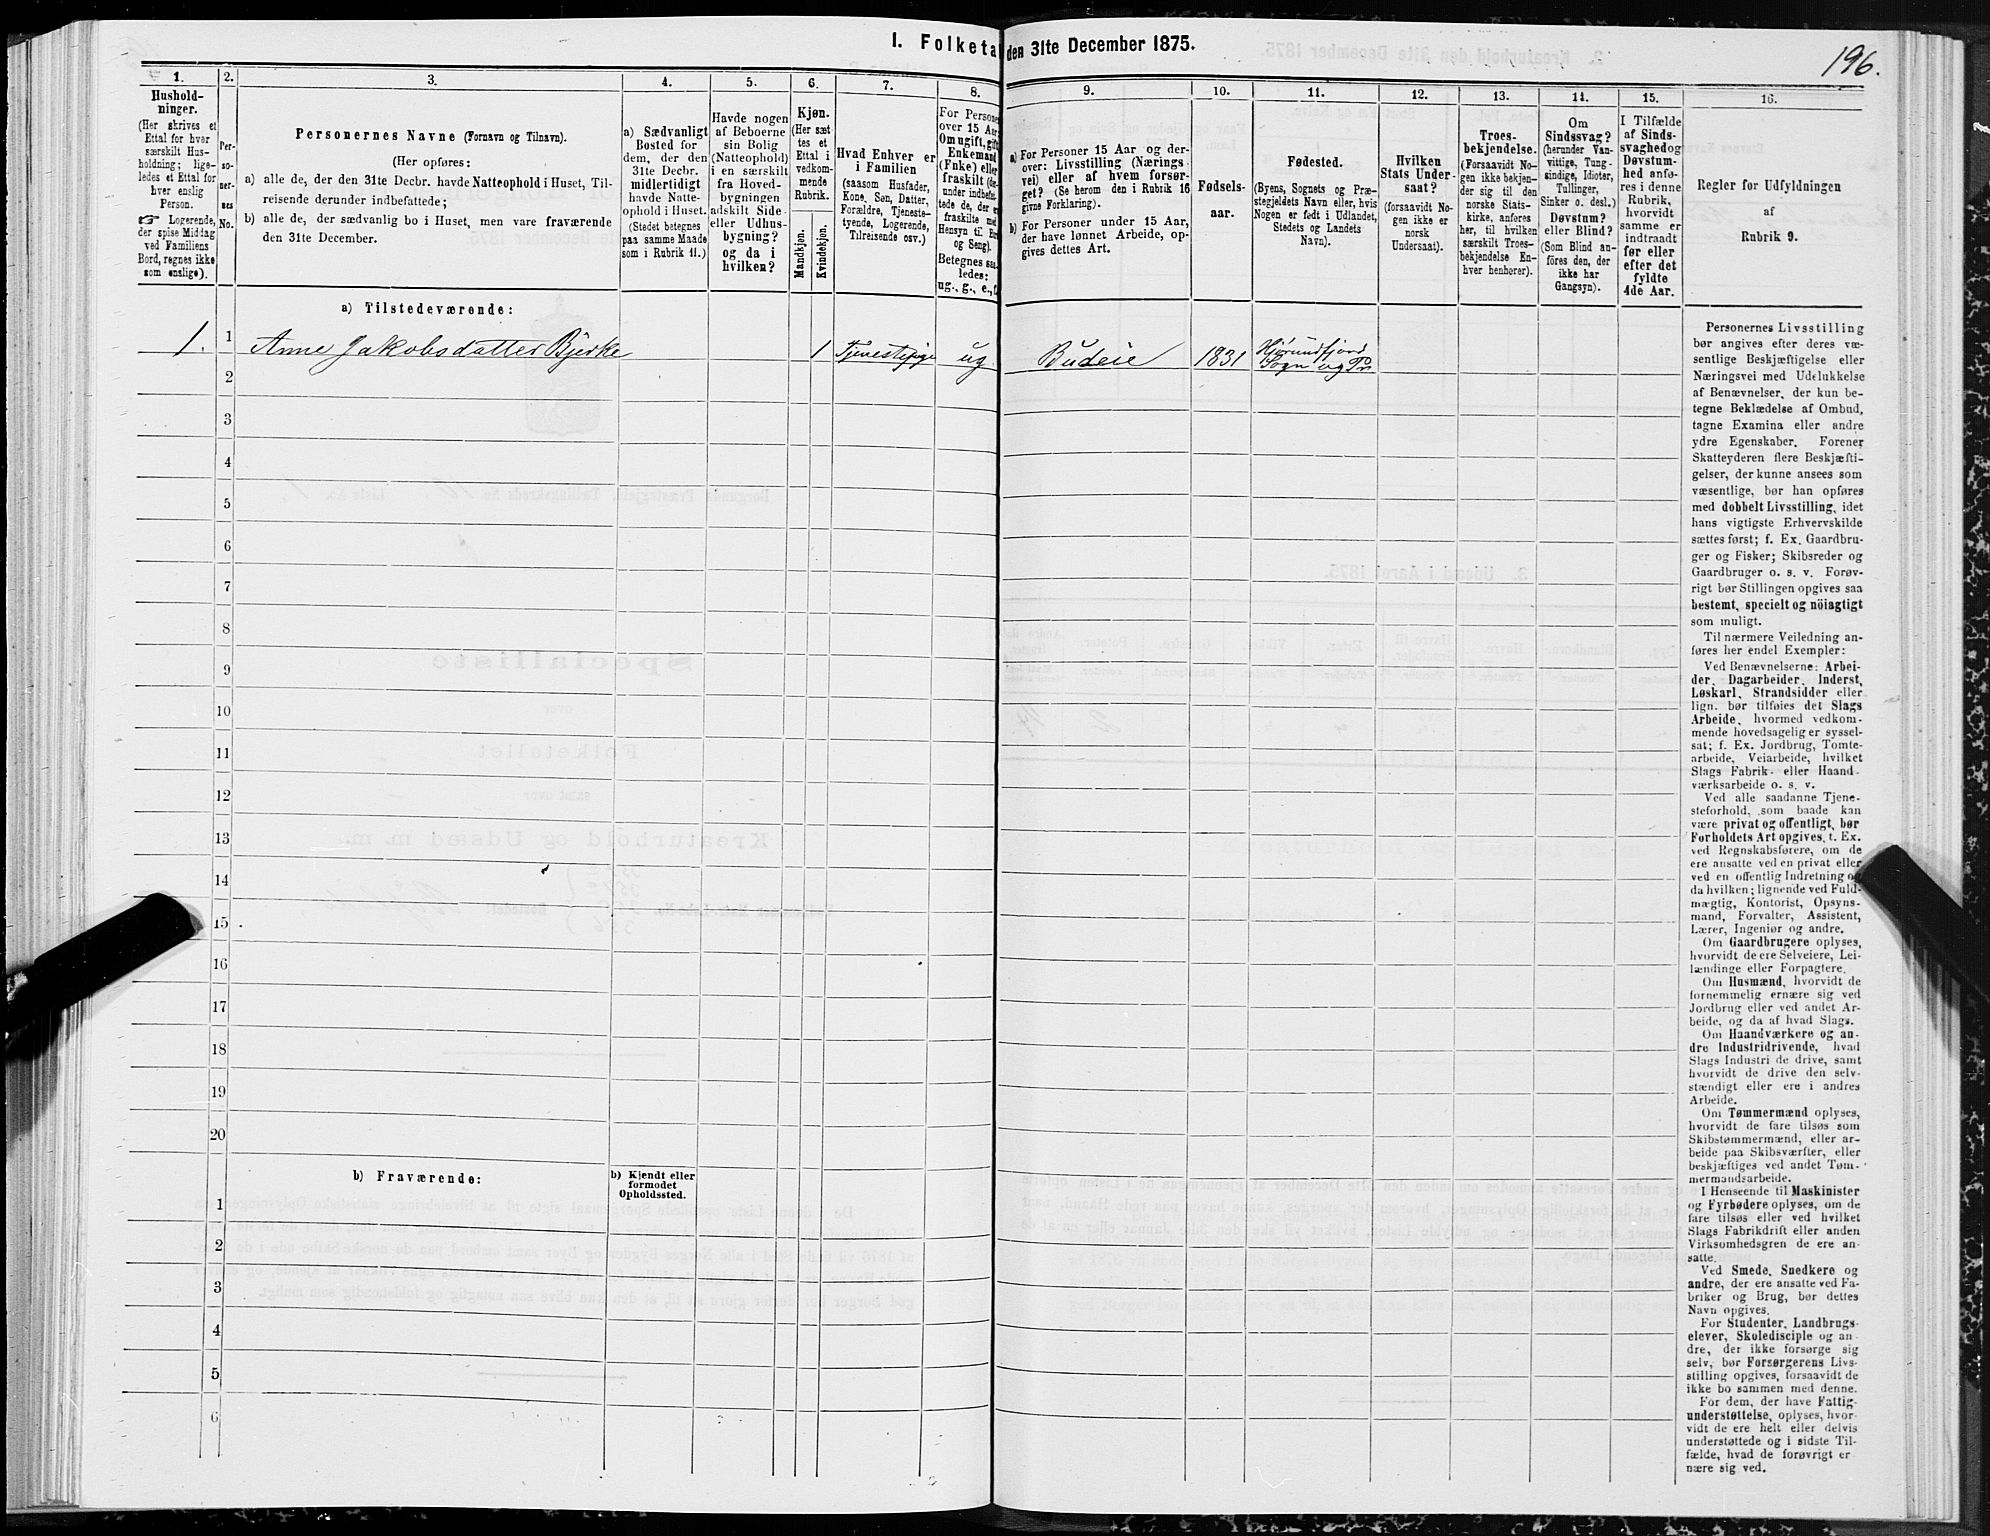 I. Folketal den 31te December 1875.
196.
1.
Hushold-
ninger.
(Her skrives et
Ettal for hver
særskilt Hus-
holdning; lige-
ledes et Ettal for
hver enslig
Person.
☞ Logerende,
der spise Middag
ved Familiens
Bord, regnes ikke
som enslige).
2.
Per-
so-
ner-
nes
No.
3.
Personernes Navne (Fornavn og Tilnavn).
(Her opføres:
a) alle de, der den 31te Decbr. havde Natteophold i Huset, Til-
reisende derunder indbefattede;
b) alle de, der sædvanlig bo i Huset, men vare fraværende
den 31te December.
4.
a) Sædvanligt
Bosted for
dem, der den
31te Decbr.
midlertidigt
havde Natte-
ophold i Huset.
(Stedet betegnes
paa samme Maade
som i Rubrik 11.)
5.
Havde nogen
af Beboerne
sin Bolig
(Natteophold)
i en særskilt
fra Hoved-
bygningen
adskilt Side-
eller Udhus-
bygning?
og da i
hvilken?
6.
Kjøn.
(Her sæt
tes et
Ettal i
vedkom-
mende
Rubrik.
Mandkjøn.
Kvindekjøn.
7.
Hvad Enhver er
i Familien
(saasom Husfader,
Kone, Søn, Datter,
Forældre, Tjeneste-
tyende, Logerende,
Tilreisende osv.)
8.
For Personer
over 15 Aar:
Om ugift, gift,
Enkemand
(Enke) eller
fraskilt
Betegnes saa-
ledes:
ug., g., e., f.
9.
a) For Personer 15 Aar og der-
over: Livsstilling (Nærings-
vei) eller af hvem forsør-
get? (Se herom den i Rubrik 16
givne Forklaring).
b) For Personer under 15 Aar,
der have lønnet Arbeide, op-
gives dettes Art.
10.
Fødsels-
aar.
11.
Fødested.
(Byens, Sognets og Præ-
stegjeldets Navn eller, hvis
Nogen er født i Udlandet,
Stedets og Landets
Navn).
12.
Hvilken
Stats Under-
saat?
(forsaavidt No-
gen ikke er
norsk
Undersaat).
13.
Troes-
bekjendelse.
(Forsaavidt No-
gen ikke bekjen-
der sig til den
norske Stats-
kirke, anføres
her, til hvilken
særskilt Troes-
bekjendelse En-
hver henhører).
14.
Om
Sindssvag?
(herunder Van-
vittige, Tung-
sindige, Idioter,
Tullinger,
Sinker o. desl.)
Døvstum?
eller Blind?
(Som Blind an-
føres den, der
ikke har
Gangsyn).
15.
I Tilfælde
af Sinds-
svaghed og
Døvstum-
hed anfø-
res i denne
Rubrik,
hvorvidt
samme er
indtraadt
før eller
efter det
fyldte
4de Aar.
16.
Regler for Udfyldningen
af
Rubrik 9.
a) Tilstedeværende:
1. 1 Anne Jakobsdatter Bjerke 1 Tjenestepige ug. Budeie 1831 Hjørundfjord
Sogn og Pr
2
3
4
5
6
7
8
9
10
11
12
13
14
15
16
17
18
19
20
b) Fraværende:
b) Kjendt eller
formodet
Opholdssted.
1
2
3
4
5
6
Personernes Livsstilling
bør angives efter deres væ-
sentlige Beskjæftigelse eller
Næringsvei med Udelukkelse
af Benævnelser, der kun be-
tegne Beklædelse af Ombud,
tagne Examina eller andre
ydre Egenskaber. Forener
Skatteyderen flere Beskjæfti-
gelser, der kunne ansees som
væsentlige, bør han opføres
med dobbelt Livsstilling, idet
hans vigtigste Erhvervskilde
sættes først; f. Ex. Gaardbru-
ger og Fisker; Skibsreder og
Gaardbruger o. s. v. Forøv-
rigt bør Stillingen opgives saa
bestemt, specielt og nöiagtigt
som muligt.
Til nærmere Veiledning an-
føres her endel Exempler:
Ved Benævnelserne: Arbei-
der, Dagarbeider, Inderst,
Løskarl, Strandsidder eller
lign. bør tilføies det Slags
Arbeide, hvormed vedkom-
mende hovedsagelig er syssel-
sat; f. Ex. Jordbrug, Tomte-
arbeide, Veiarbeide, hvilket
Slags Fabrik- eller Haand-
værksarbeide o. s. v.
Ved alle saadanne Tjene-
steforhold, som baade kan
være privat og offentligt, bør
Forholdets Art opgives, f. Ex.
ved Regnskabsførere, om de
ere ansatte ved en privat eller
ved en offentlig Indretning og
da hvilken; lignende ved Fuld-
mægtig, Kontorist, Opsyns-
mand, Forvalter, Assistent,
Lærer, Ingeniør og andre.
Om Gaardbrugere oplyses,
hvorvidt de ere Selveiere, Lei-
lændinge eller Forpagtere.
Om Husmænd, hvorvidt de
fornemmelig ernære sig ved
Jordbrug eller ved andet Ar-
beide, og da af hvad Slags.
Om Haandværkere og an-
dre Industridrivende, hvad
Slags Industri de drive, samt
hvorvidt de drive den selv-
stændigt eller ere i andres
Arbeide.
Om Tømmermænd oplyses,
hvorvidt de fare tilsøs som
Skibstømmermænd, eller ar-
beide paa Skibsværfter, eller
beskjæftiges ved andet Tøm-
mermandsarbeide.
I Henseende til Maskinister
og Fyrbødere oplyses, om de
fare tilsøs eller ved hvilket
Slags Fabrikdrift eller anden
Virksomhedsgren de ere an-
satte.
Ved Smede, Snedkere og
andre, der ere ansatte ved Fa-
briker og Brug, bør dettes
Navn opgives.
For Studenter, Landbrugs-
elever, Skoledisciple og an-
dre, der ikke forsørge sig
selv, bør Forsørgerens Livs-
stilling opgives, forsaavidt de
ikke bo sammen med denne.
For dem, der have Fattig-
understøttelse, oplyses, hvor-
vidt de ere helt eller delvis
understøttede og i sidste Til-
fælde, hvad de forøvrigt er-
nære sig ved.